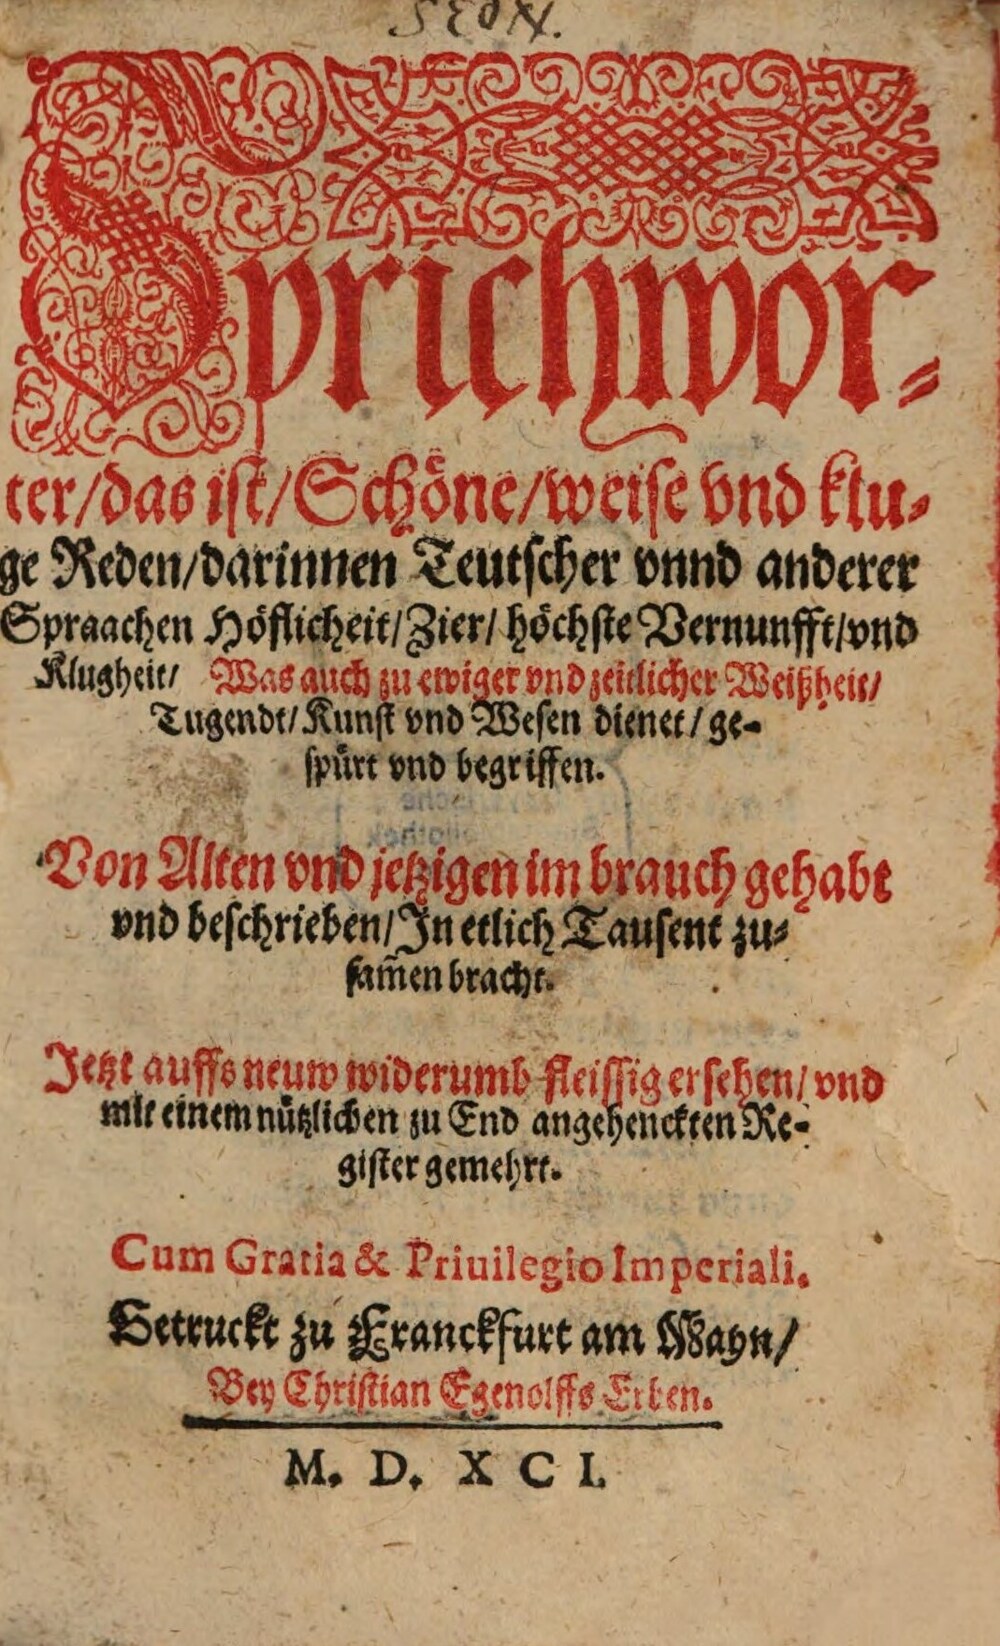 SEON.
Sprichwor⸗
ter/das ist/Schöne/weise vnd klu⸗
ge Reden/darinnen Teutscher vnnd anderer
Spraachen Höflicheit/Zier/höchste Vernunfft/vnd
Klugheit/ Was auch zu ewiger vnd zeitlicher Weißheit/
Tugendt/Kunst vnd Wesen dienet/ge⸗
spürt vnd begriffen.
Von Alten vnd jetzigen im brauch gehabt
vnd beschrieben/In etlich Tausent zu⸗
sam̃en bracht.
Jetzt auffs neuw widerumb fleissig ersehen/vnd
mit einem nützlichen zu End angehenckten Re⸗
gister gemehrt.
Cum Gratia & Priuilegio Imperiali.
Getruckt zu Franckfurt am Mayn/
Bey Christian Egenolffs Erben.
M. D. XCI.